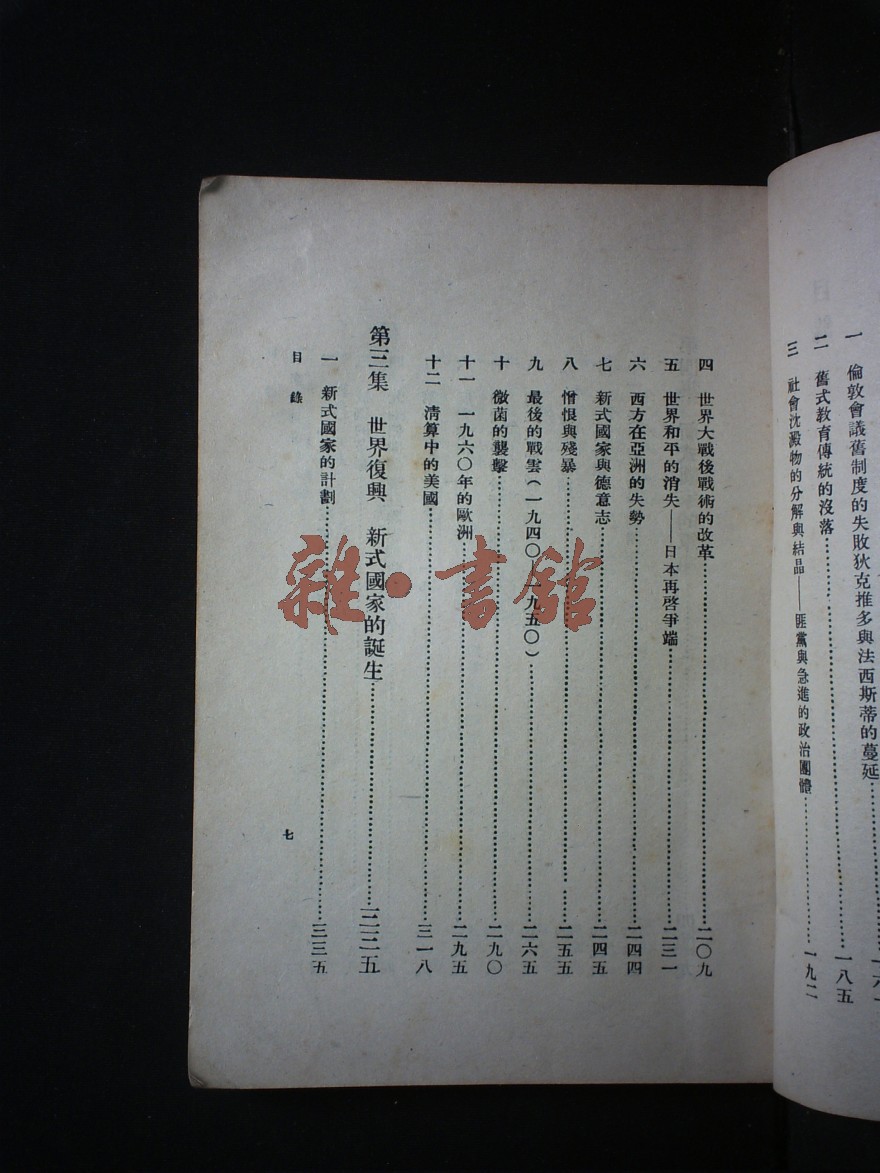 一 倫敦會議舊制度的失敗狄克推多與法西斯蒂的蔓延
二 舊式教育傳統的沒落 一八五
三 社會沈澱物的分解與結晶——匪黨與急進的政治團體 一九二
四 世界大戰後戰術的改革 二〇九
五 世界和平的消失——日本再啓爭端 二三一
六 西方在亞洲的失勢 二四四
七 新式國家與德意志 二四五
八 憎恨與殘暴 二五五
九 最後的戰雲(一九四〇—一九五〇) 二六五
十 微菌的襲擊 二九〇
十一 一九六〇年的歐洲 二九五
十二 清算中的美國 三一八
第三集 世界復興 新式國家的誕生
一 新式國家的計劃 三三五
目錄
七
雜·書館